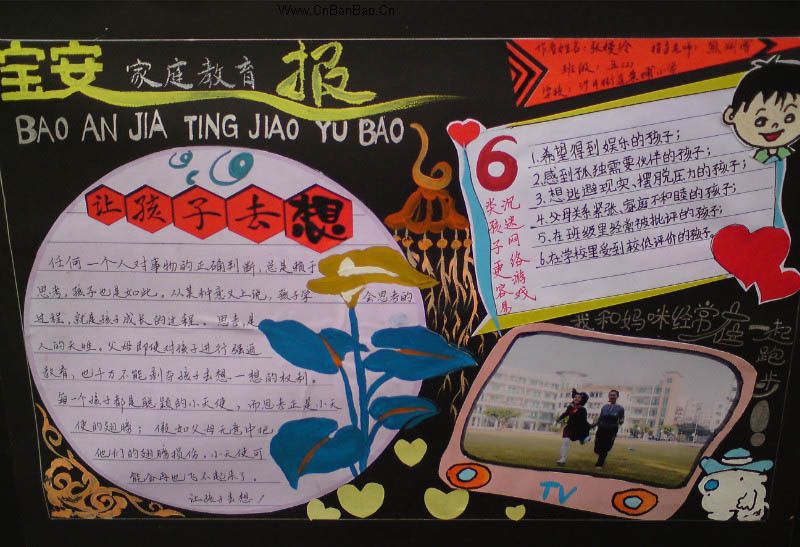 Www.CnBanBao.Cn
宝安 家庭教育 报
BAO AN JIA TING JIAO YU BAO
班级：五(2)
让孩子去想
任何一个人对事物的正确判断，总是赖于
思考，孩子也是如此。从某种意义上说，孩子学 会思考的
过程，就是孩子成长的过程。思考，是
人的天性。父母即使对孩子进行强迫
教育，也千万不能剥夺孩子去想一想的权利。
每一个孩子都是聪颖的小天使，而思考正是小天
使的翅膀；假如父母无意中把
他们的翅膀损伤，小天使可
能会再也飞不起来了。
让孩子去想！
6
类孩子更容易
沉迷网络游戏
1.希望得到娱乐的孩子；
2.感到孤独需要伙伴的孩子；
3.想逃避现实、摆脱压力的孩子；
4.父母关系紧张、家庭不和睦的孩子；
5.在班级里经常被批评的孩子；
6.在学校里受到较低评价的孩子。
我和妈咪经常在一起
跑步
TV